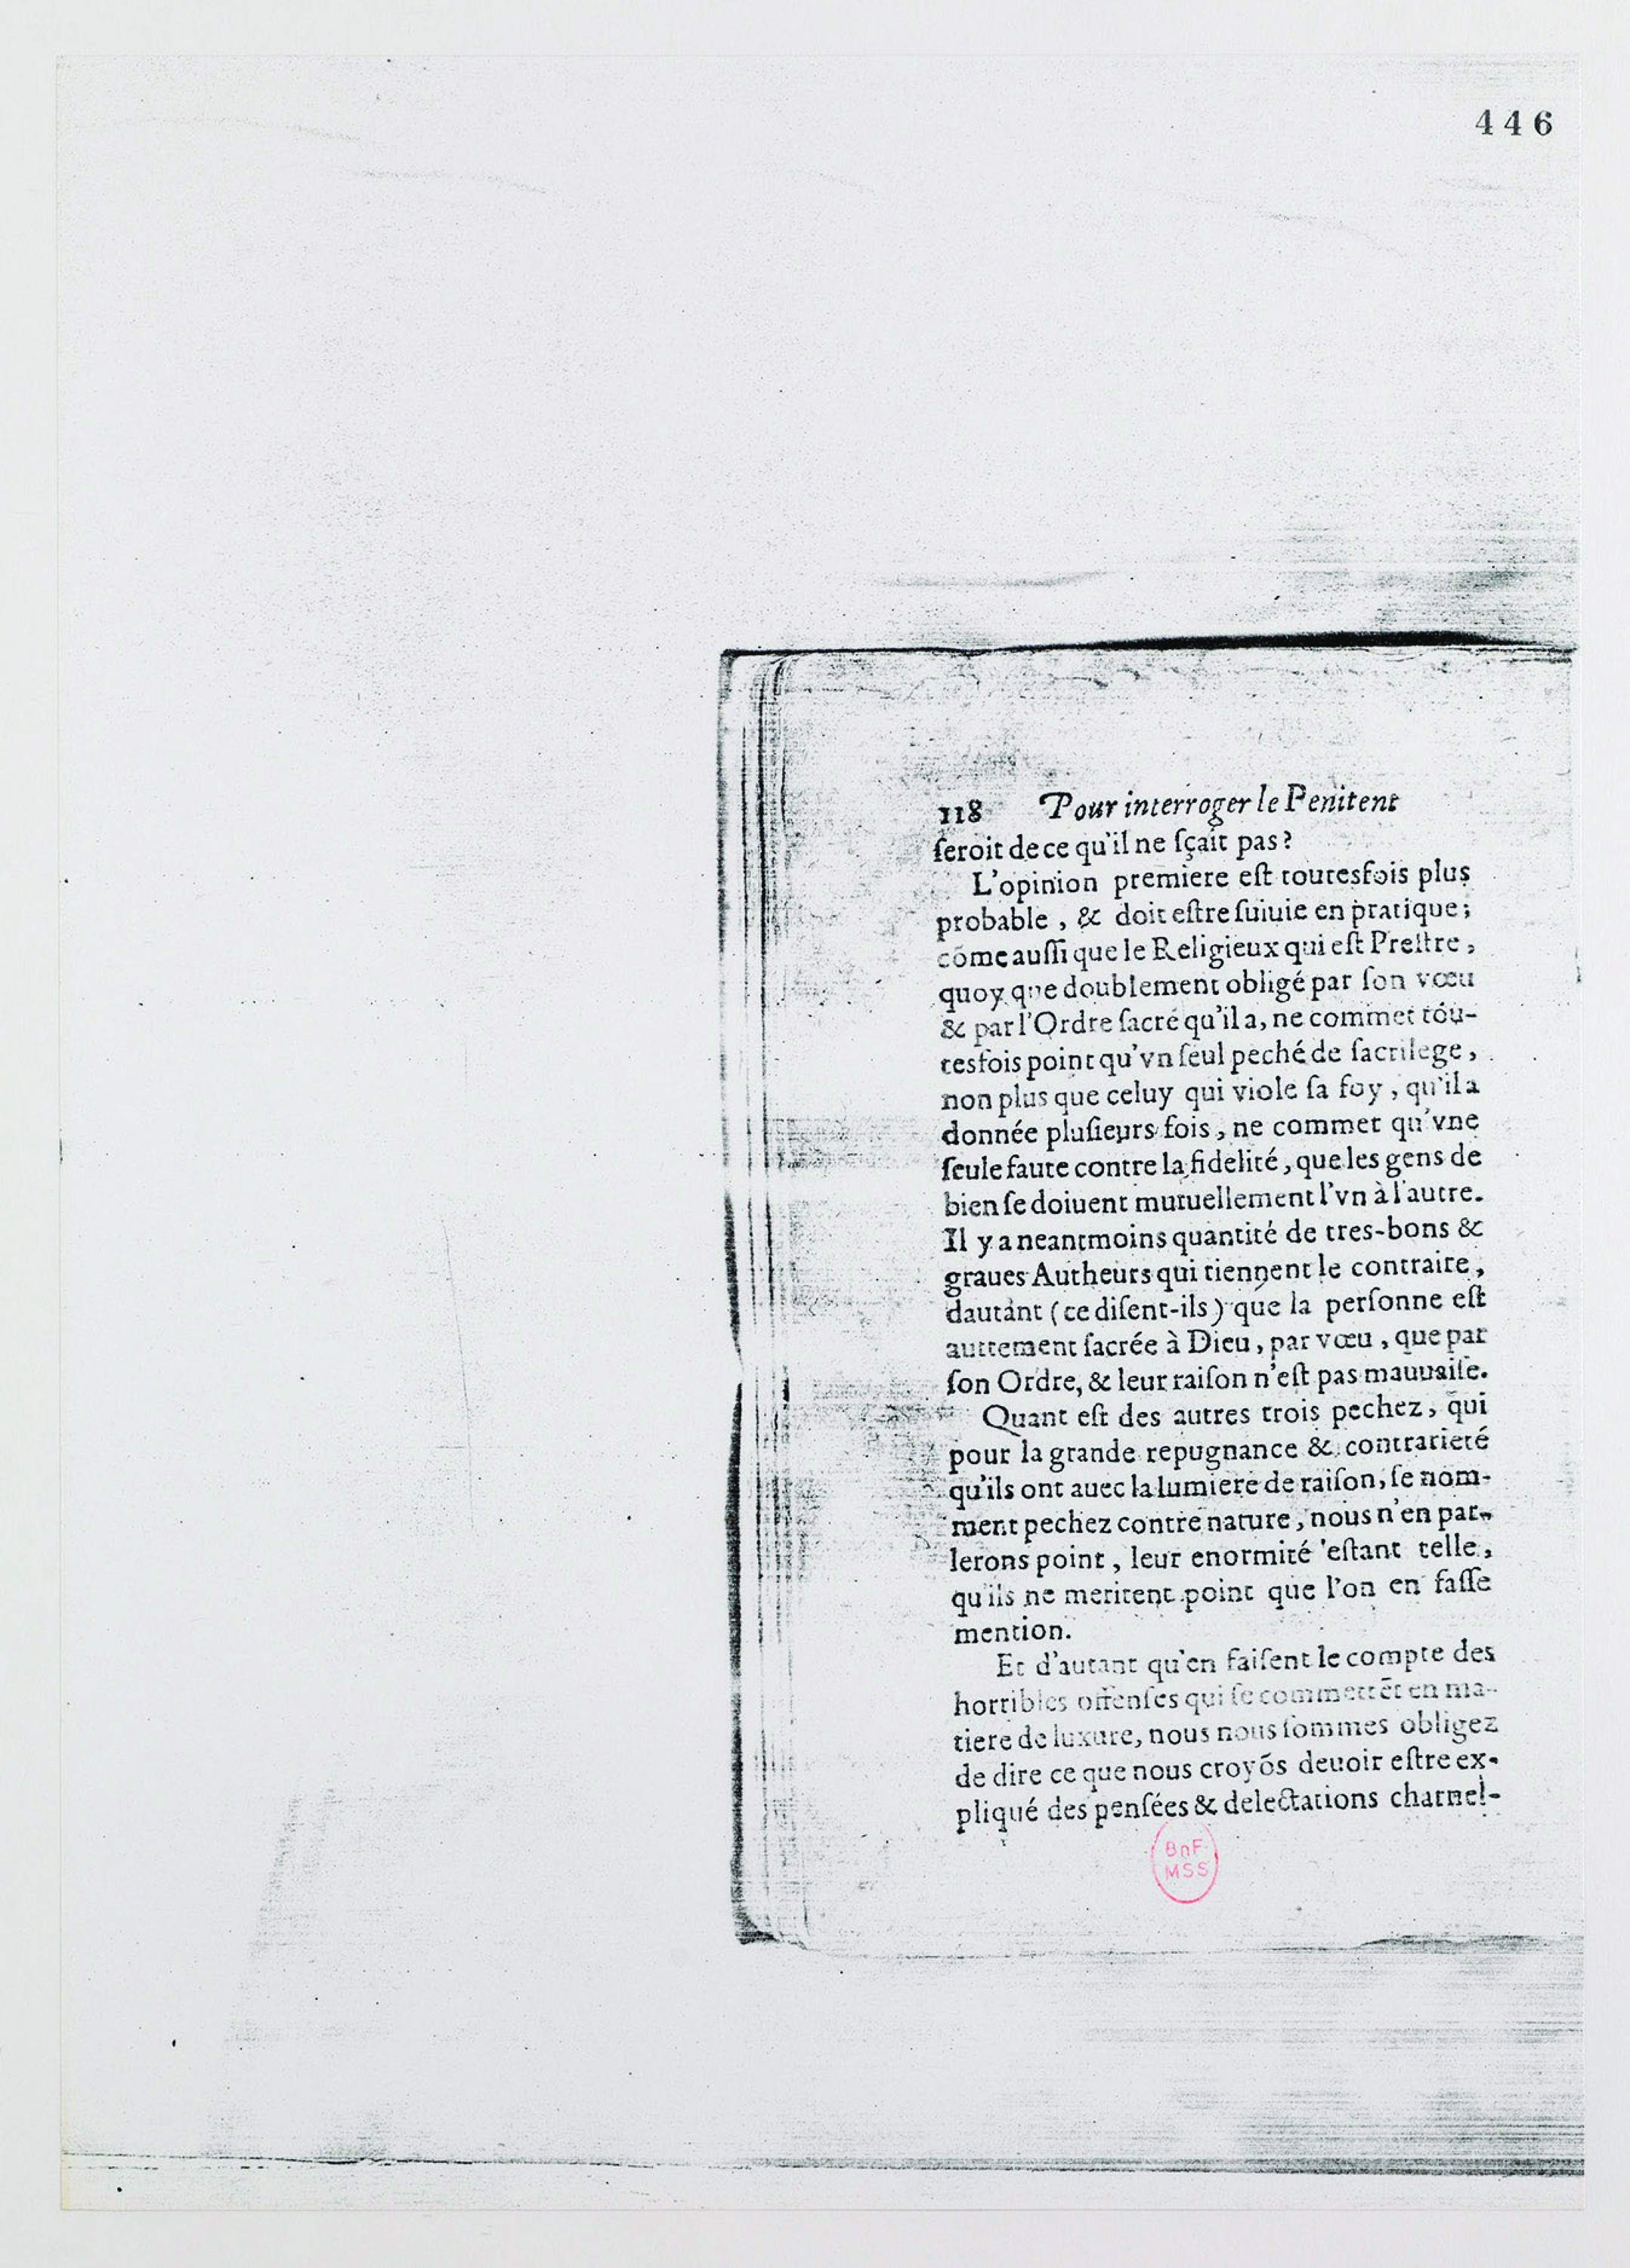 446
118 Pour interroger le Penitent
ſeroit de ce qu'il ne ſçait pas?
L'opinion premiere eſt toutesfois plus
probable, & doit eſtre ſuiuie en pratique;
cōme auſſi que le Religieux qui eſt Preſtre,
quoy que doublement obligé par ſon vœu
& par l'Ordre ſacré qu'il a, ne commet tou-
tesfois point qu'vn ſeul peché de ſacrilege,
non plus que celuy qui viole ſa foy, qu'il a
donnée pluſieurs fois, ne commet qu'vne
ſeule faute contre la fidelité, que les gens de
bien ſe doiuent mutuellement l'vn à l'autre.
Il y a neantmoins quantité de tres-bons &
graues Autheurs qui tiennent le contraire,
dautant (ce diſent-ils) que la perſonne eſt
autrement ſacrée à Dieu, par vœu, que par
ſon Ordre, & leur raiſon n'eſt pas mauuaiſe.
Quant eſt des autres trois pechez, qui
pour la grande repugnance & contrarieté
qu'ils ont auec la lumiere de raiſon, ſe nom-
ment pechez contre nature, nous n'en par-
lerons point, leur enormité eſtant telle,
qu'ils ne meritent point que l'on en faſſe
mention.
Et d'autant qu'en faiſent le compte des
horribles offenſes qui ſe commettēt en ma-
tiere de luxure, nous nous ſommes obligez
de dire ce que nous croyōs deuoir eſtre ex-
pliqué des penſées & delectations charnel-
BnF
MSS